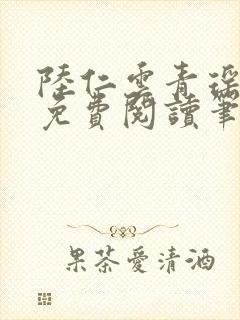 陸仁雲青瑤
免費閱讀筆
果茶愛清酒